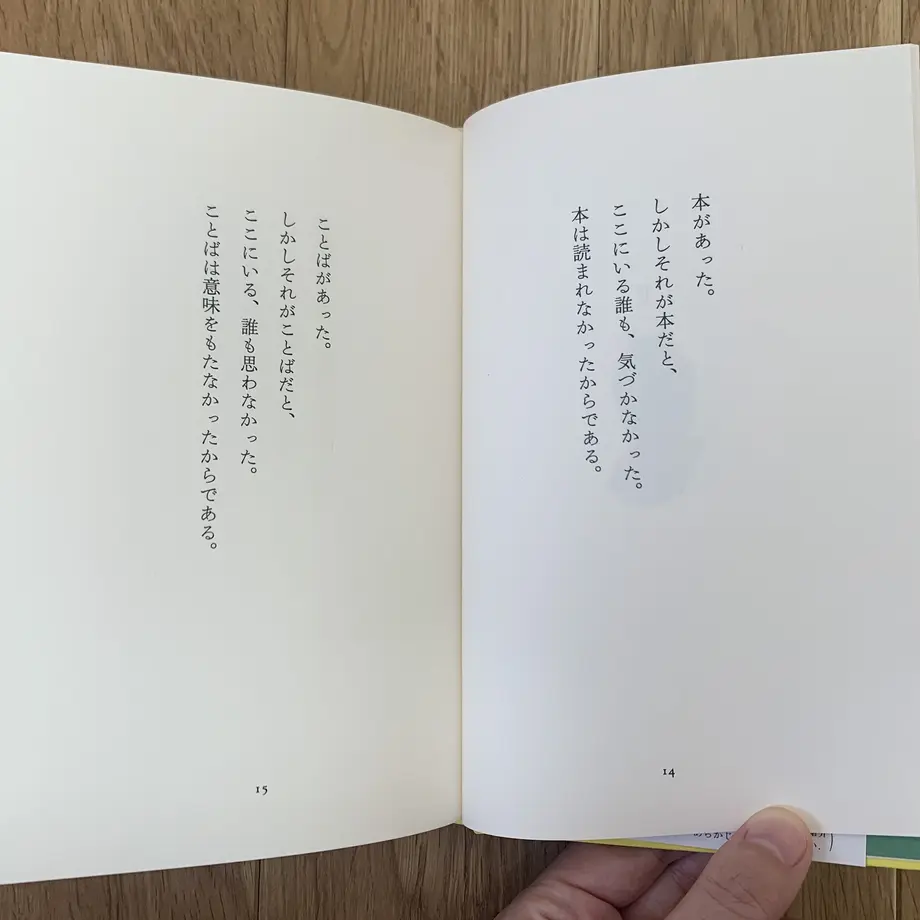 本があった。
しかしそれが本だと、
ここにいる誰も、気づかなかった。
本は読まれなかったからである。
14
ことばがあった。
しかしそれがことばだと、
ここにいる、誰も思わなかった。
ことばは意味をもたなかったからである。
15